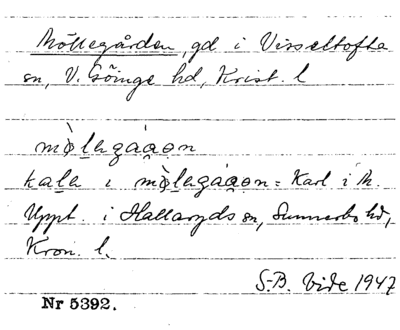 Möllegården, gd i Visseltofta
sn, V. Göinge hd, Krist. l
mø̀lagáꝛən
kala i mø̀lagáꝛən = Karl i M.
Uppt. i Hallaryds sn, Sunnerbo hd,
Kron. l.
S.-B. Vide 1947
Nr 5392.